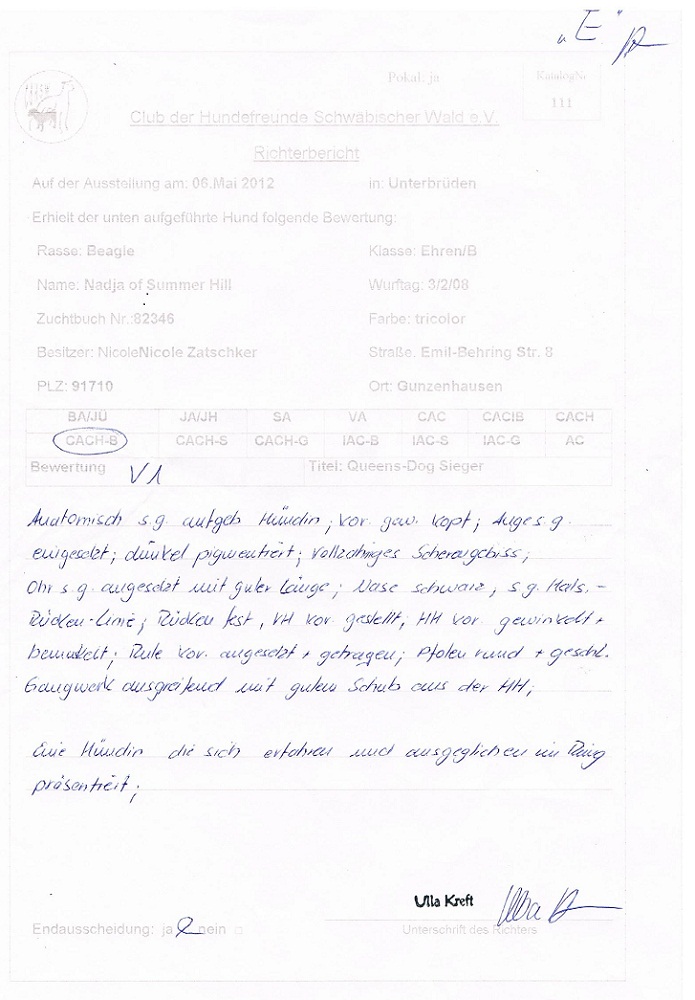 „E“
Pokal: ja
KatalogNr
111
Club der Hundefreunde Schwäbischer Wald e.V.
Richterbericht
Auf der Ausstellung am: 06.Mai 2012 in: Unterbrüden
Erhielt der unten aufgeführte Hund folgende Bewertung:
Rasse: Beagle Klasse: Ehren/B
Name: Nadja of Summer Hill Wurftag: 3/2/08
Zuchtbuch Nr.:82346 Farbe: tricolor
Besitzer: NicoleNicole Zatschker Straße. Emil-Behring Str. 8
PLZ: 91710 Ort: Gunzenhausen
BA/JÜ JA/JH SA VA CAC CACIB CACH
CACH-B CACH-S CACH-G IAC-B IAC-S IAC-G AC
Bewertung V1 Titel: Queens-Dog Sieger
Anatomisch s.g. aufgeb Hündin; vor. gew. Kopf; Auge s.g.
eingesetzt; dunkel pigmentiert; vollzahniges Scherengebiss;
Ohr s.g. angesetzt mit guter Länge; Nase schwarz, s.g. Hals-
Rücken-Linie; Rücken fest, VH vor. gestellt; HH vor. gewinkelt +
bemuskelt; Rute vor. angesetzt + getragen; Pfoten rund + geschl.
Gangwerk ausgreifend mit gutem Schub aus der HH;
Eine Hündin die sich erfahren und ausgeglichen im Ring
präsentiert;
Ulla Kreft
Endausscheidung: ja nein
Unterschrift des Richters